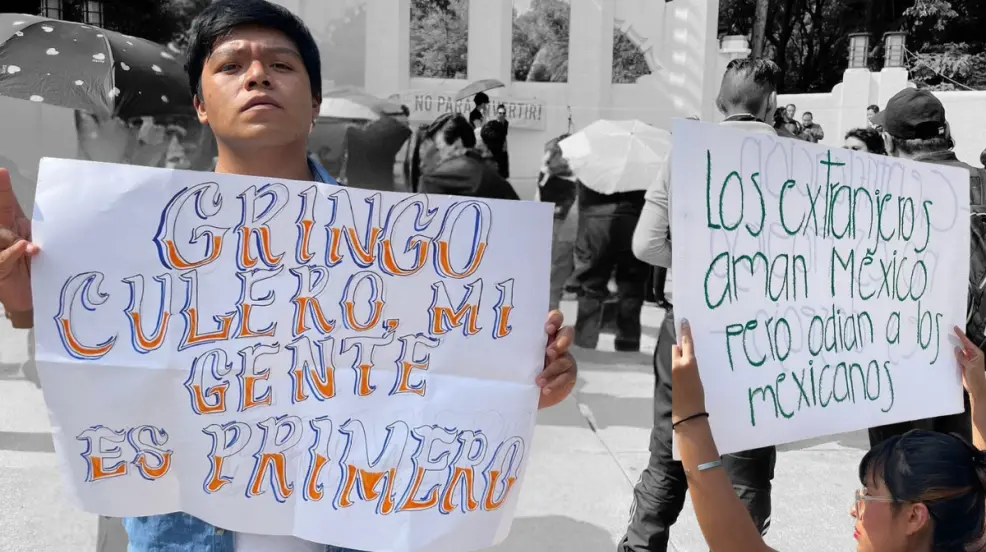 NO PARA DIVERTIR!
GRINGO
CULERO, MI
GENTE
ES PRIMERO
Los extranjeros
aman México
pero odian a los
mexicanos